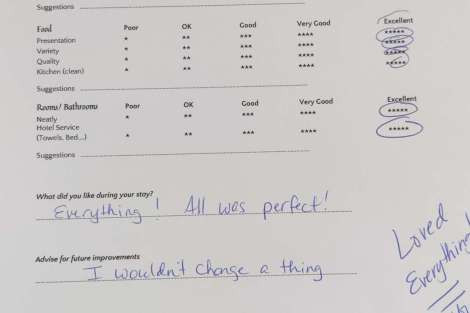 Suggestions
Food Poor OK Good Very Good Excellent
Presentation * ** *** **** *****
Variety * ** *** **** *****
Quality * ** *** **** *****
Kitchen (clean) * ** *** **** *****
Suggestions
Rooms/ Bathrooms Poor OK Good Very Good Excellent
Neatly * ** *** **** *****
Hotel Service
(Towels, Bed...) * ** *** **** *****
Suggestions
What did you like during your stay?
Everything! All was perfect!
Advise for future improvements
I wouldn't change a thing
Loved
Everything